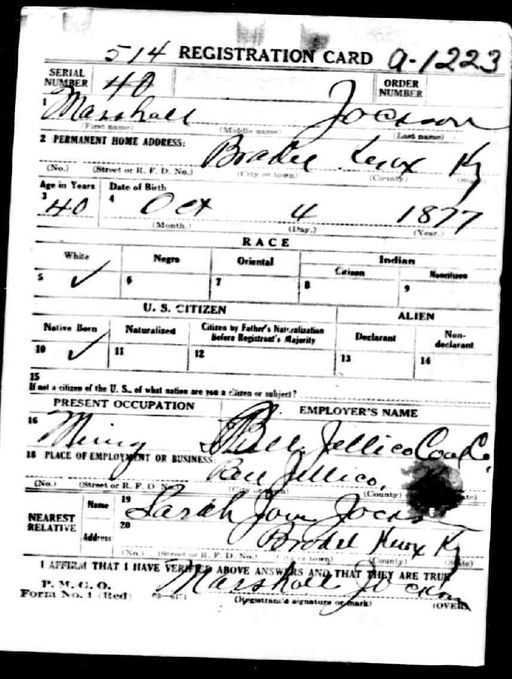 514 REGISTRATION CARD a-1223
SERIAL NUMBER 40 ORDER NUMBER
1 Marshall Jackson
(First name) (Middle name) (Last name)
2 PERMANENT HOME ADDRESS: Knox Ky
(No.) (Street or R. F. D. No.) (City or town) (County) (State)
Age in Years Date of Birth
3 40 4 Oct 4 1877
(Month.) (Day.) (Year.)
RACE
White Negro Oriental Indian
Citizen Noncitizen
5 ✓ 6 7 8 9
U. S. CITIZEN ALIEN
Native Born Naturalized Citizen by Father's Naturalization Before Registrant's Majority Declarant Non-declarant
10 ✓ 11 12 13 14
15
If not a citizen of the U. S., of what nation are you a citizen or subject?
PRESENT OCCUPATION EMPLOYER'S NAME
16 Jellico Coal Co.
18 PLACE OF EMPLOYMENT OR BUSINESS: Jellico,
(No.) (Street or R. F. D. No.) (City or town) (County)
NEAREST RELATIVE Name 19 Sarah Jackson
Address 20 Knox Ky
(No.) (Street or R. F. D. No.) (City or town) (County) (State)
I AFFIRM THAT I HAVE VERIFIED ABOVE ANSWERS AND THAT THEY ARE TRUE
P. M. G. O.
Form No. 1 (Red) Marshall Jackson
(Registrant's signature or mark) (OVER)